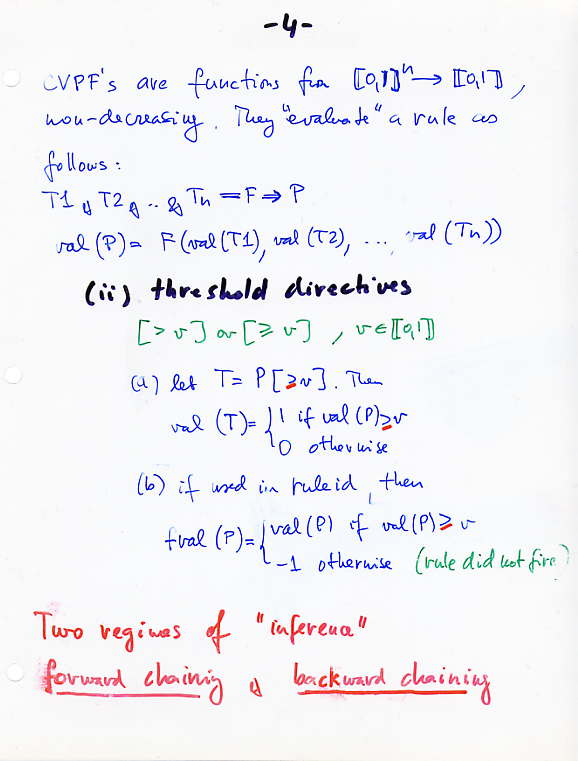 -4-
CVPF's are functions from [[0,1]]ⁿ → [[0,1]],
non-decreasing. They "evaluate" a rule as
follows:
T1 & T2 & .. & Tn =F⇒ P
val (P) = F(val(T1), val (T2), ..., val (Tn))
(ii) threshold directives
[> v] or [≥ v] , v ∈ [[0,1]]
(a) let T = P[≥v]. Then
val (T) = { 1 if val (P) ≥ v
0 otherwise
(b) if used in ruleid, then
fval (P) = { val (P) if val (P) ≥ v
-1 otherwise (rule did not fire)
Two regimes of "inference"
forward chaining & backward chaining